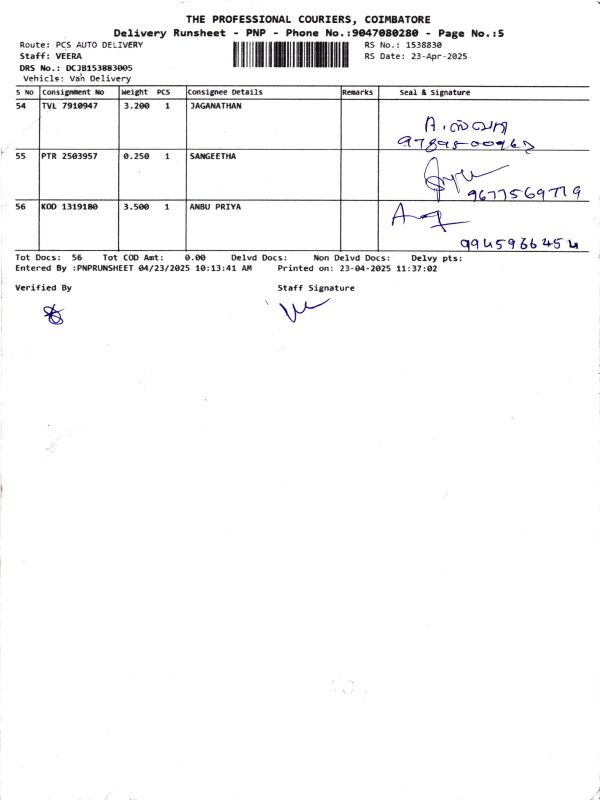 THE PROFESSIONAL COURIERS, COIMBATORE
Delivery Runsheet - PNP - Phone No.:9047080280 - Page No.:5
Route: PCS AUTO DELIVERY RS No.: 1538830
Staff: VEERA RS Date: 23-Apr-2025
DRS No.: DCJB153883005
Vehicle: Van Delivery
S No Consignment No Weight PCS Consignee Details Remarks Seal & Signature
54 TVL 7910947 3.200 1 JAGANATHAN
55 PTR 2503957 0.250 1 SANGEETHA
9677569779
56 KOD 1319180 3.500 1 ANBU PRIYA
9945966454
Tot Docs: 56 Tot COD Amt: 0.00 Delvd Docs: Non Delvd Docs: Delvy pts:
Entered By :PNPRUNSHEET 04/23/2025 10:13:41 AM Printed on: 23-04-2025 11:37:02
Verified By Staff Signature